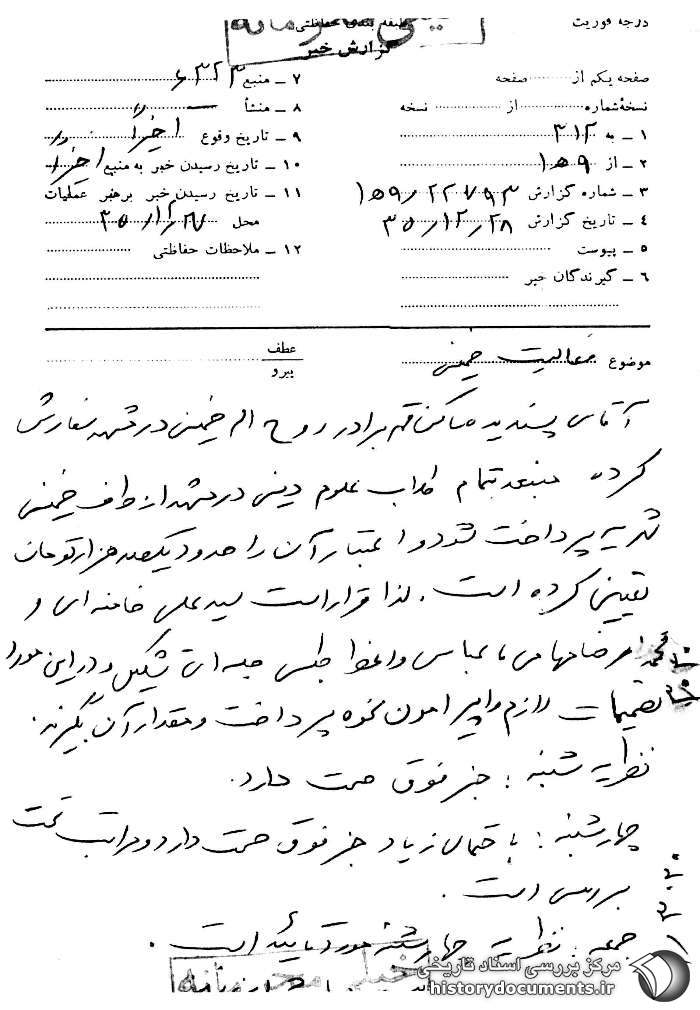 درجه فوریت
طبقه بندی حفاظتی
خیلی محرمانه
گزارش خبر
صفحه یکم از صفحه
نسخه شماره از نسخه
۱ – به ۳۱۲
۲ – از ۱۵۹
۳ – شماره گزارش ۱۵۹/۲۲۷۹۳
۴ – تاریخ گزارش ۳۵/۱۲/۲۸
۵ – پیوست
۶ – گیرندگان خبر
۷ – منبع ۶۳۲۳
۸ – منشأ
۹ – تاریخ وقوع اخیراً
۱۰ – تاریخ رسیدن خبر به منبع اخیراً
۱۱ – تاریخ رسیدن خبر برهبر عملیات
محل ۳۵/۱۲/۲۷
۱۲ – ملاحظات حفاظتی
موضوع فعالیت خمینی
عطف
پیرو
آقای پسندیده ساکن قم برادر روح اله خمینی در مشهد سفارش
کرده منبعد بتمام طلاب علوم دینی در مشهد از طرف خمینی
شهریه پرداخت شود و اعتبار آن را حدود یکصد هزار تومان
تعیین کرده است. لذا قرار است سید علی خامنه ای و
محمد رضا مهامی با عباس واعظ طبسی جلسه ای تشکیل و در این مورد
تصمیمات لازم را پیرامون نحوه پرداخت و مقدار آن بگیرند.
نظریه شنبه : خبر فوق صحت دارد.
چهارشنبه : باحتمال زیاد خبر فوق صحت دارد و مراتب تحت
بررسی است.
جمعه : نظریه چهارشنبه مورد تأیید است.
خیلی محرمانه
مرکز بررسی اسناد تاریخی
historydocuments.ir